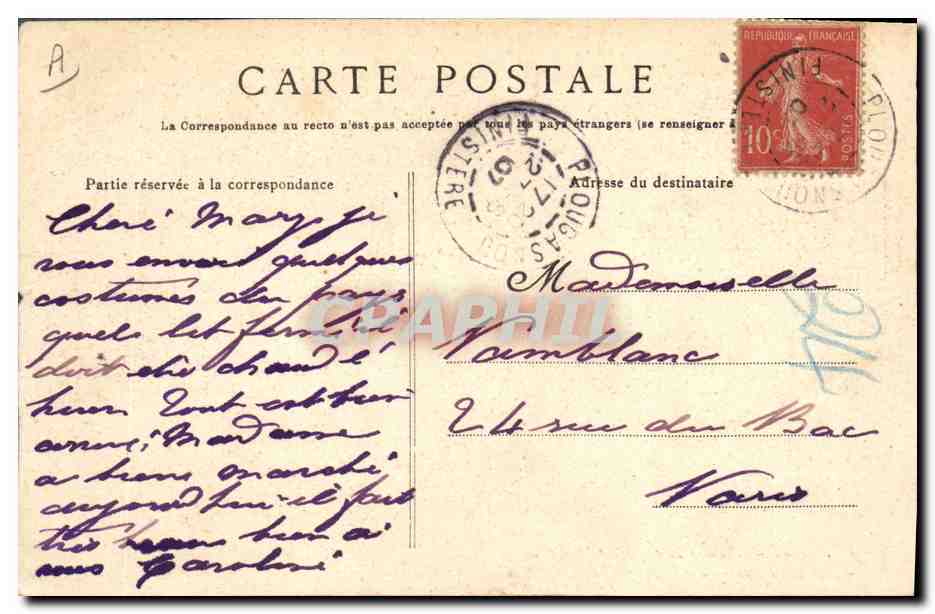 A
CARTE POSTALE
La Correspondance au recto n'est pas acceptée par tous les pays étrangers (se renseigner à
REPUBLIQUE FRANÇAISE
10c
POSTES
PLOUGASNOU
FINISTERE
17
07
Partie réservée à la correspondance
Adresse du destinataire
Cheré Mary je
vous envoi quelques
costumes du pays
quels lit fermé il
doit etre chaud l'
hiver Tout est bien
arrivé, Madame
a bien marché
aujourd hui il fait
très bien a
vous Caroline
Mademoiselle
Vamblanc
24 rue du Bac
Paris
CPAPHIL